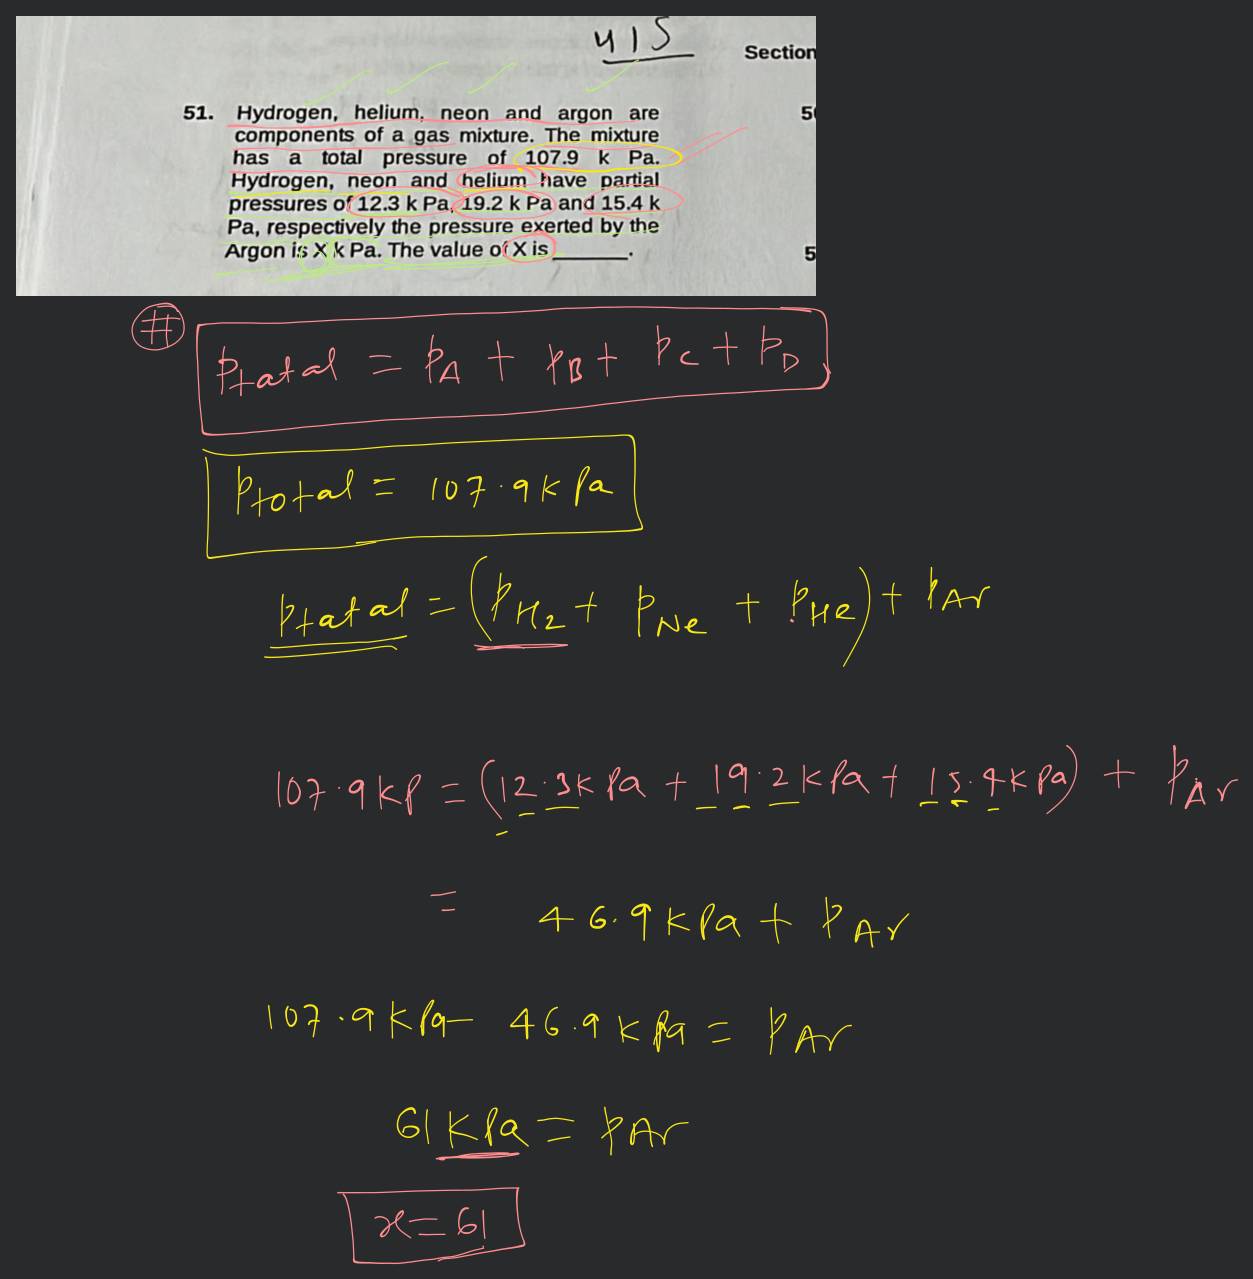 415
Section
51. Hydrogen, helium, neon and argon are
components of a gas mixture. The mixture
has a total pressure of 107.9 k Pa.
Hydrogen, neon and helium have partial
pressures of 12.3 k Pa, 19.2 k Pa and 15.4 k
Pa, respectively the pressure exerted by the
Argon is X k Pa. The value of X is ______.
5
#
Ptatal = PA + PB + PC + PD
Ptotal = 107.9 k Pa
Ptatal = (PH2 + PNe + PHe) + PAr
107.9 kP = (12.3k Pa + 19.2 k Pa + 15.4 k Pa) + PAr
= 46.9 k Pa + PAr
107.9 k Pa - 46.9 k Pa = PAr
61 KPa = PAr
x = 61